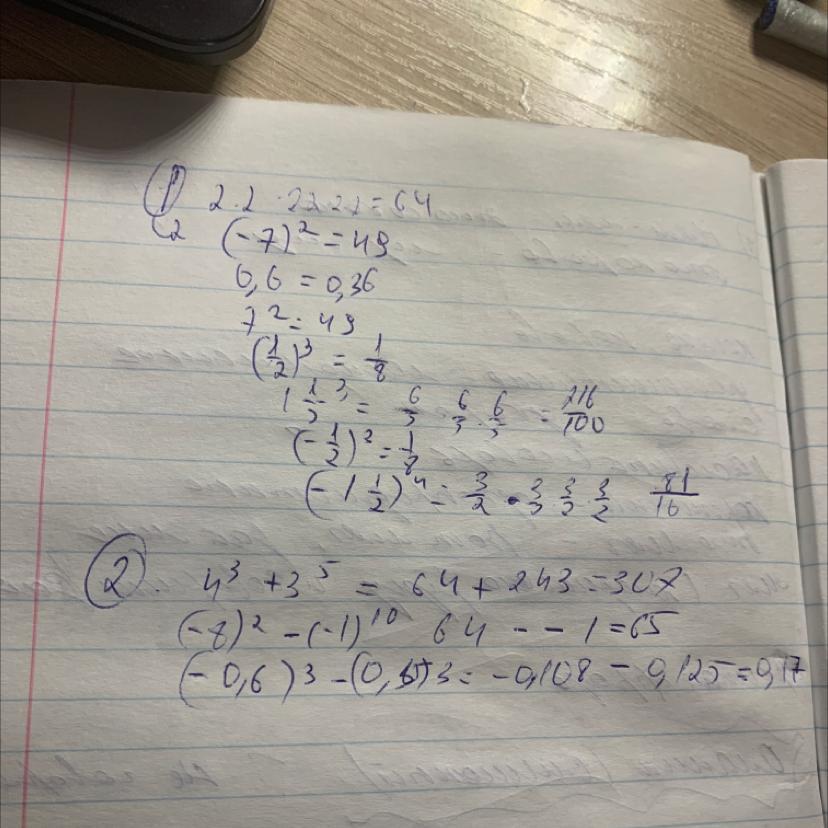 ① 2.2 · 22 2.2 = 64
2 (-7)² = 49
0,6 = 0,36
7² = 49
(1/2)³ = 1/8
1 1/5³ = 6/5 6/5 · 6/5 = 216/100
(-1/2)² = 1/8
(-1 1/2)⁴ = 3/2 · 3/2 3/2 3/2 81/16
②. 4³ + 3⁵ = 64 + 243 = 307
(-8)² - (-1)¹⁰ 64 - - 1 = 65
(-0,6)3 - (0,5)3 = -0,108 - 0,125 = 0,17